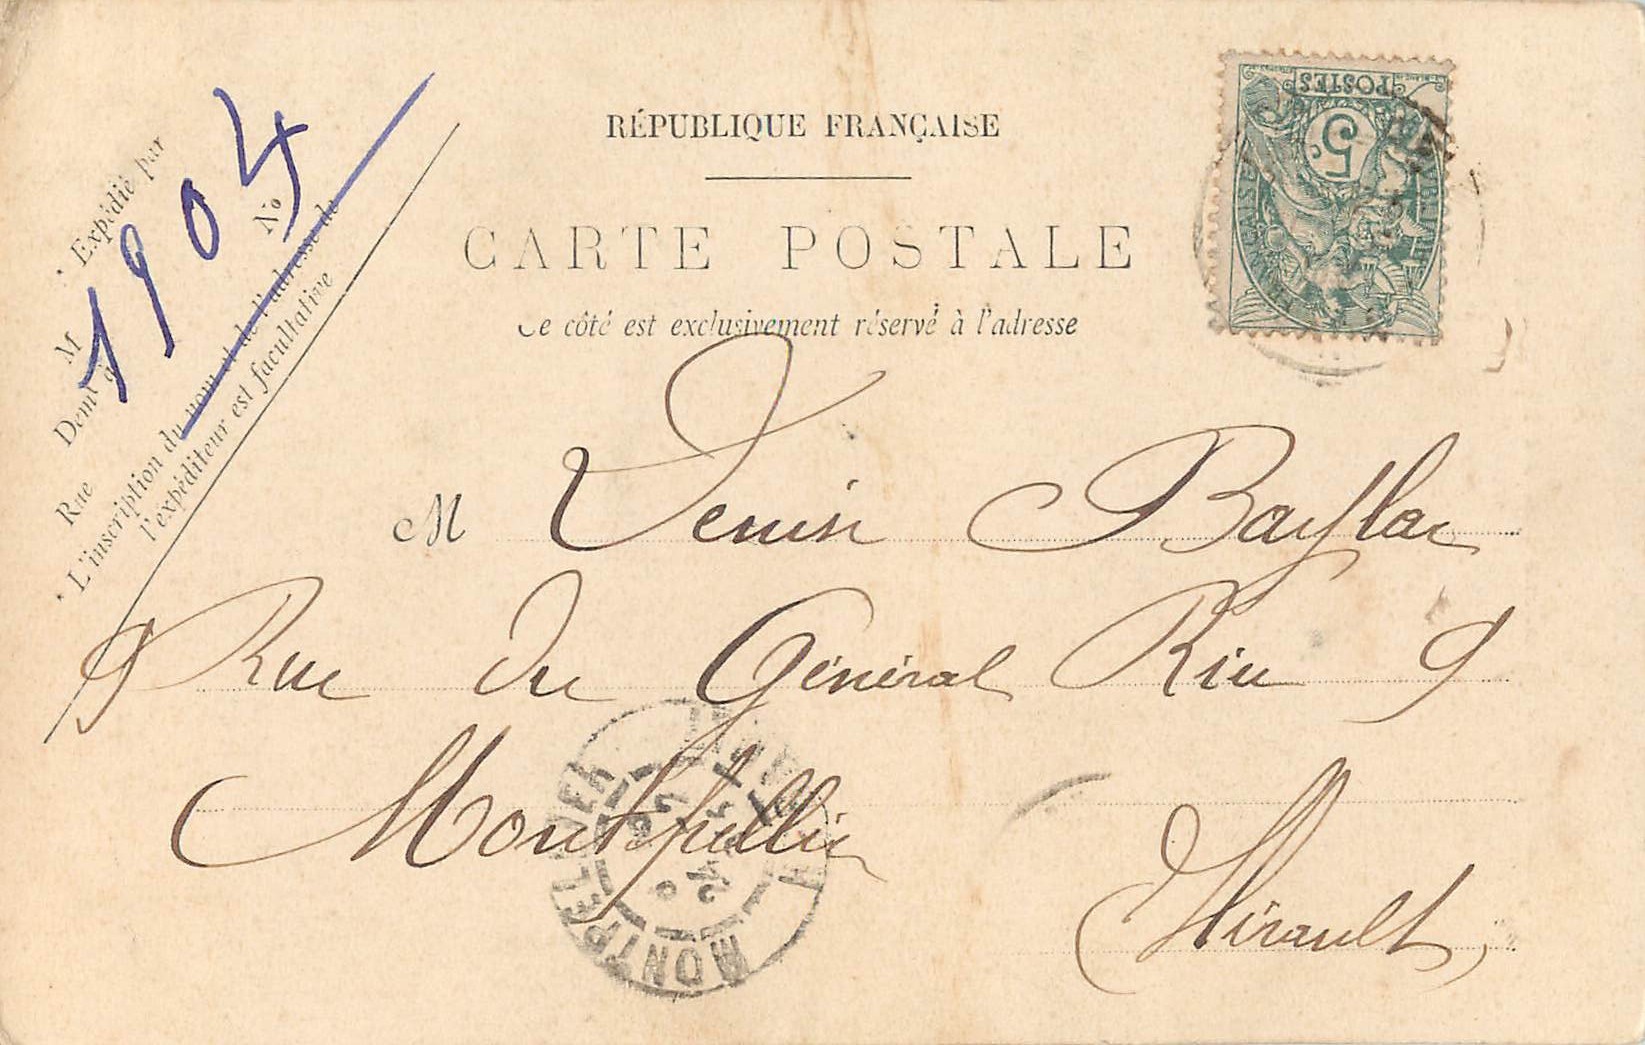 RÉPUBLIQUE FRANÇAISE
CARTE POSTALE
Ce côté est exclusivement réservé à l'adresse
Expédié par
M
No
Demt à
Rue
L'inscription du nom et de l'adresse de
l'expéditeur est facultative
1904
POSTES
5c
M Denis Baylac
9 Rue du Général Riu 9
Montpellier
Hérault
MONTPELLIER
HERAULT